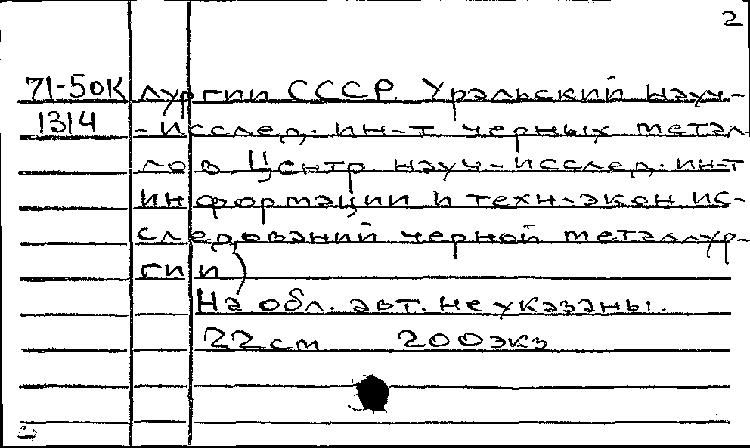 2
71-50к лургии СССР. Уральский науч-
1314 -исслед. ин-т черных метал-
лов. Центр науч-исслед. ин-т
информации и техн-экон ис-
следований черной металлур-
гии)
На обл. авт. не указаны.
22 см 200 экз